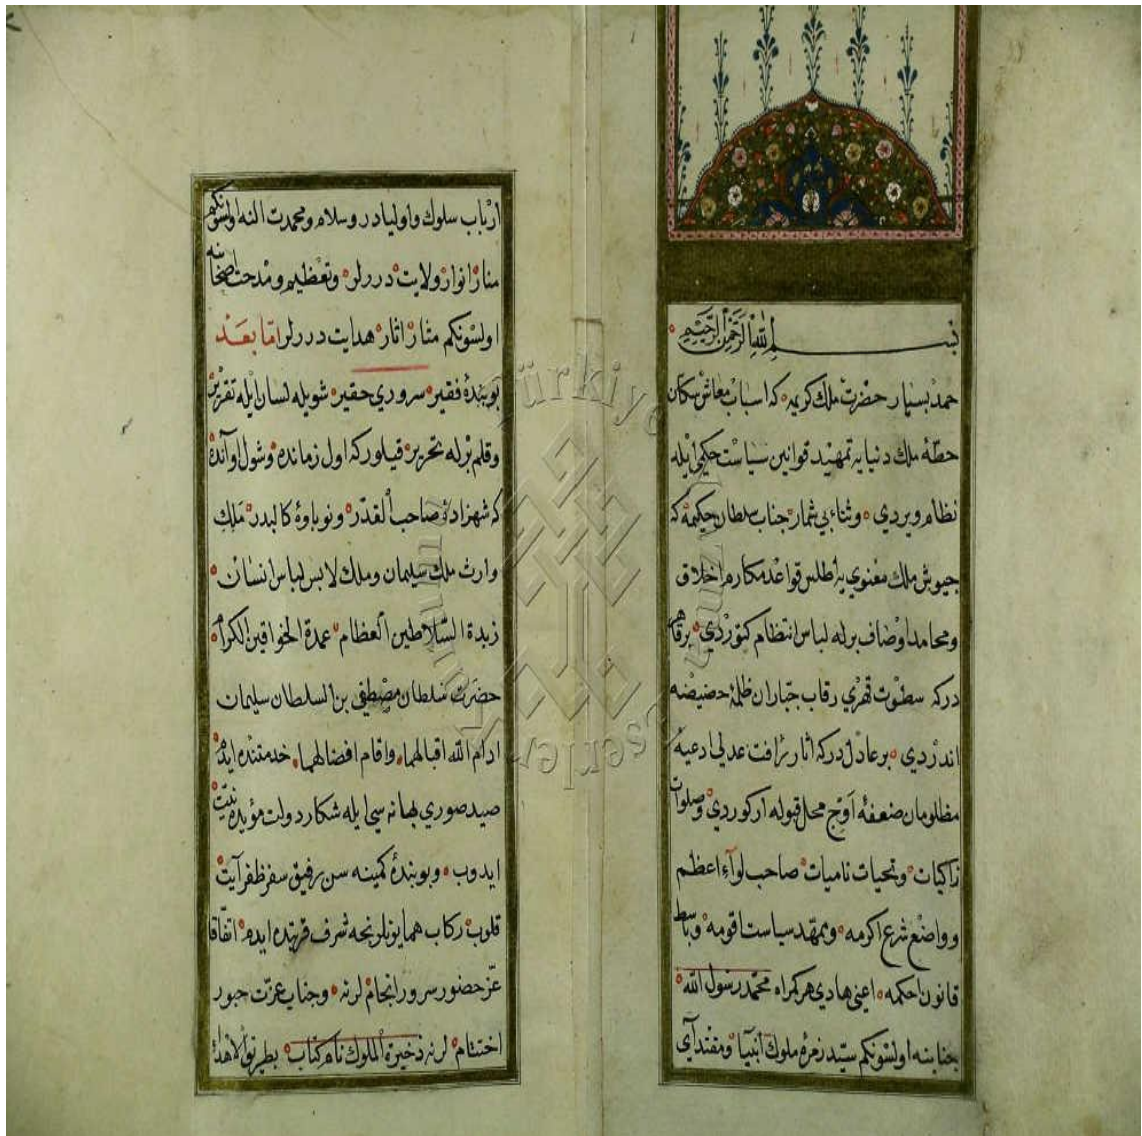 بسم الله الرحمن الرحيم
حمد بسيار حضرت ملك كريمه كه اسباب معاش سكان
خطّه ملك دنيايه تمهيد قوانين سياست حكمي ايله
نظام ويردي وثناء بي شمار جناب سلطان حكيمه كه
جيوش ملك معنوي يه اطلس قواعد مكارم اخلاق
ومحامد اوصاف برله لباس انتظام كتوردي برقاهر
دركه سطوت قهري رقاب جباران ظلمه حضيضنه
اندردي بر عادل دركه اثار رافت عدلي ادعيه
مظلومان ضعفه اوج محل قبوله اركوردي وصلوات
زاكيات وتحيات ناميات صاحب لوآء اعظم
وواضع شرع اكرمه وممهّد سياست اقومه وباسط
قانون احكمه اعني هادي هر كمراه محمد رسول الله
جنابنه اولسونكم سيّد زمره ملوك انبيا ومقتدآى
ارباب سلوك واوليادر وسلام ومحمدت النه اولسونكم
منار انوار ولايت دررلر وتعظيم ومدحت اصحابنه
اولسونكم مثار اثار هدايت دررلر امّا بعد
بو بنده فقير سروري حقير شويله لسان ايله تقرير
وقلم برله تحرير قيلوركه اول زمانده وشول اوآنده
كه شهزاده صاحب القدر ونوباوۀ كالبدر ملك
وارث ملك سليمان وملك لابس لباس انسان
زبدة السّلاطين العظام عمدة الخواقين الكرام
حضرت سلطان مصطفى بن السلطان سليمان
ادام الله اقبالهما واقام افضالهما خدمتنده ايدم
صيد صوري بهانه سي ايله شكار دولت مؤبده نيّت
ايدوب وبو بندۀ كمينه سن رفيق سفر ظفر آيت
قلوب ركاب همايونلرنجه شرف قربتده ايدم اتفاقا
عزّ حضور سرور انجاملرنه وجناب عزت حبور
اختتاملرنه ذخيرة الملوك نام كتاب بطريق الاهدا